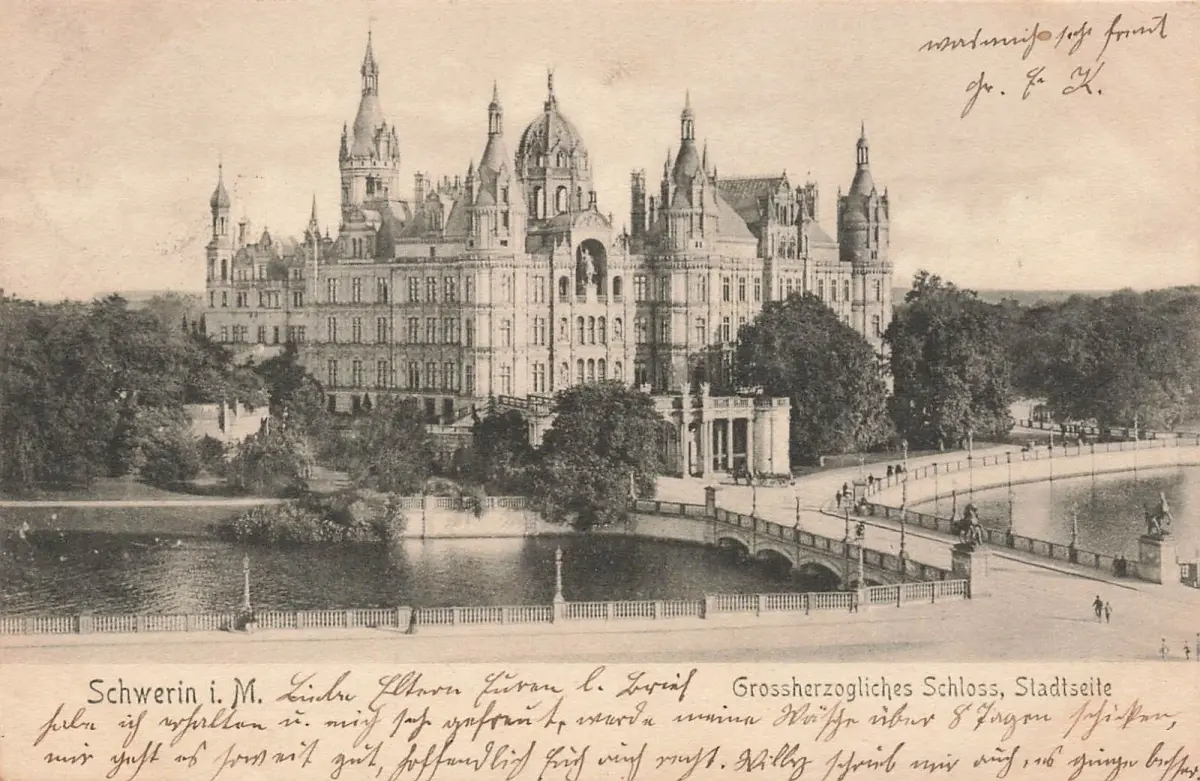 was mich sehr freut
Gr. E K.
Schwerin i. M. Liebe Eltern Euren l. Brief Grossherzogliches Schloss, Stadtseite
habe ich erhalten u. mich sehr gefreut, werde meine Wäsche über 8 Tagen schicken,
mir geht es soweit gut, hoffendlich Euch auch recht. Willy schrieb mir auch, es ginge besser